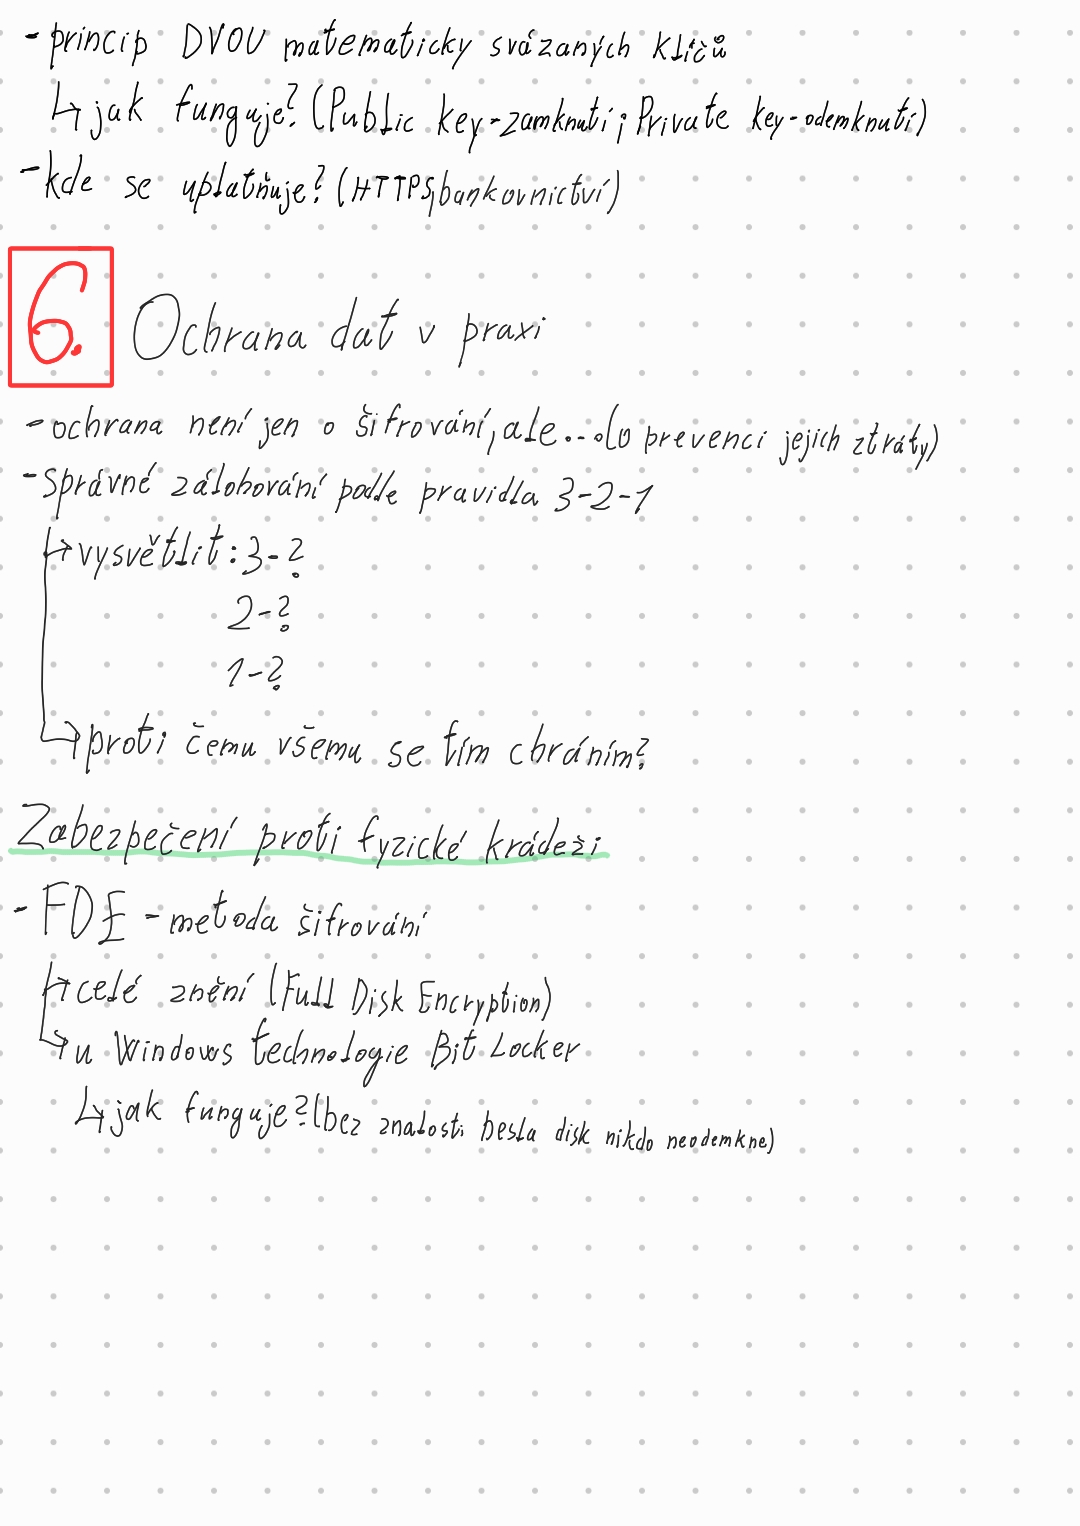 - princip DVOU matematicky svázaných klíčů
↳ jak funguje? (Public key-zamknutí; Private key-odemknutí)
- kde se uplatňuje? (HTTPS, bankovnictví)
6. Ochrana dat v praxi
- ochrana není jen o šifrování, ale...o prevenci jejich ztráty)
- správné zálohování podle pravidla 3-2-1
↳ vysvětlit: 3-?
2-?
1-?
↳ proti čemu všemu se tím chráním?
Zabezpečení proti fyzické krádeži
- FDE - metoda šifrování
↳ celé znění (Full Disk Encryption)
↳ u Windows technologie Bit Locker
↳ jak funguje? (bez znalosti hesla disk nikdo neodemkne)